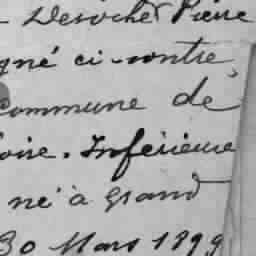 Desrocher Pierre
gné ci-contre,
commune de
oire-Inférieure
né à Grand
30 Mars 1899